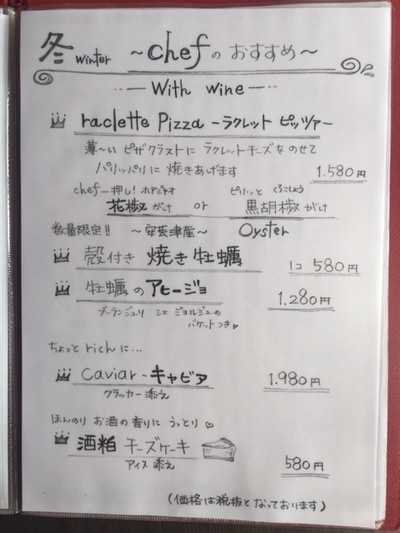 冬 winter ～chefのおすすめ～
—With wine—
raclette Pizza －ラクレット ピッツァ－
薄～い ピザクラストに ラクレットチーズをのせて
パリッパリに 焼きあげます 1.580円
chef一押し! ホアジャオ ピリッと くろこしょう
花椒がけ or 黒胡椒がけ
数量限定!! ～安芸津産～ Oyster
殻付き 焼き牡蠣 1コ 580円
牡蠣のアヒージョ 1.280円
ブーランジュリ シェ ジョルジュの
バケットつき♡
ちょっと richに…
Caviar－キャビア 1.980円
クラッカー添え
ほんのり お酒の香りに うっとり♡
酒粕 チーズケーキ 580円
アイス添え
(価格は税抜となっております)